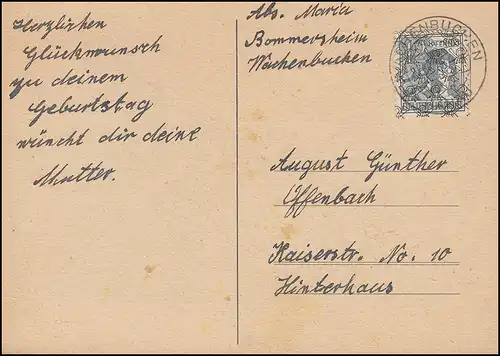 Herzlichen
Glückwunsch
zu deinem
Geburtstag
wüncht dir deine
Mutter.
Abs. Maria
Bommersheim
Wachenbuchen
August Günther
Offenbach
Kaiserstr. No. 10
Hinterhaus